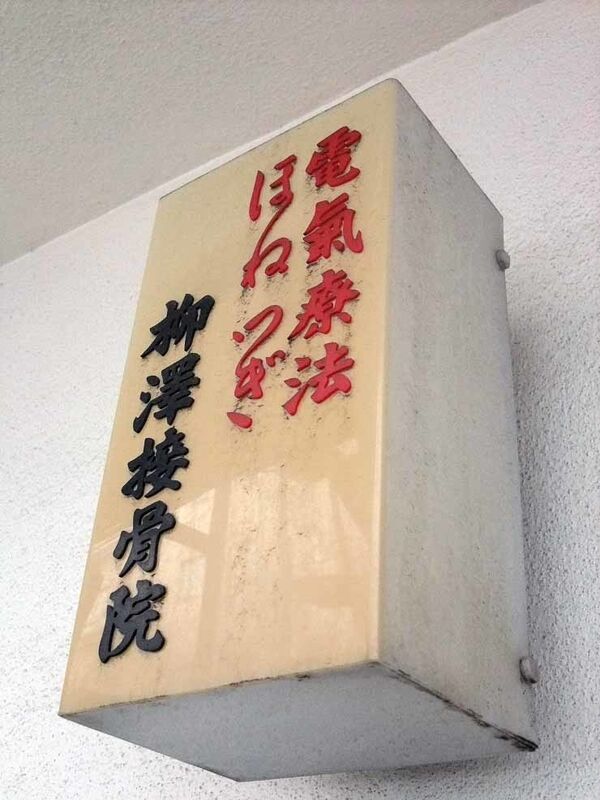 電氣療法
ほねつぎ
柳澤接骨院